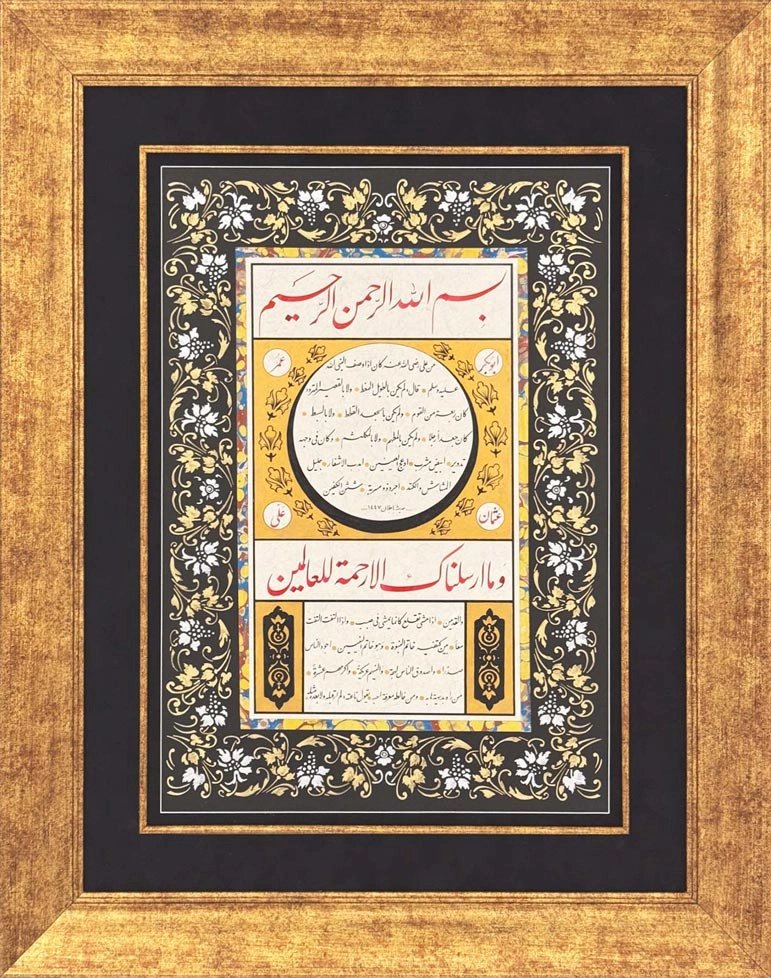 بسم الله الرحمن الرحيم
ابوبكر
عمر
عن علی رضی الله عنه كان اذا وصف النبی صلی الله
عليه وسلم قال لم يكن بالطويل الممغط ولا بالقصير المتردد
كان ربعة من القوم ولم يكن بالجعد القطط ولا بالسبط
كان جعدا رجلا ولم يكن بالمطهم ولا بالمكلثم وكان فی وجهه
تدوير ابيض مشرب ادعج العينين اهدب الاشفار جليل
المشاش والكتد اجرد ذو مسربة شثن الكفين
١٤٤٧
عثمان
علی
وما ارسلناك الا رحمة للعالمين
والقدمين اذا مشی تقلع كانما يمشی فی صبب واذا التفت التفت
معا بين كتفيه خاتم النبوة وهو خاتم النبيين اجود الناس
صدرا واصدق الناس لهجة والينهم عريكة واكرمهم عشرة
من رآه بديهة هابه ومن خالطه معرفة احبه يقول ناعته لم ار قبله ولا بعده مثله